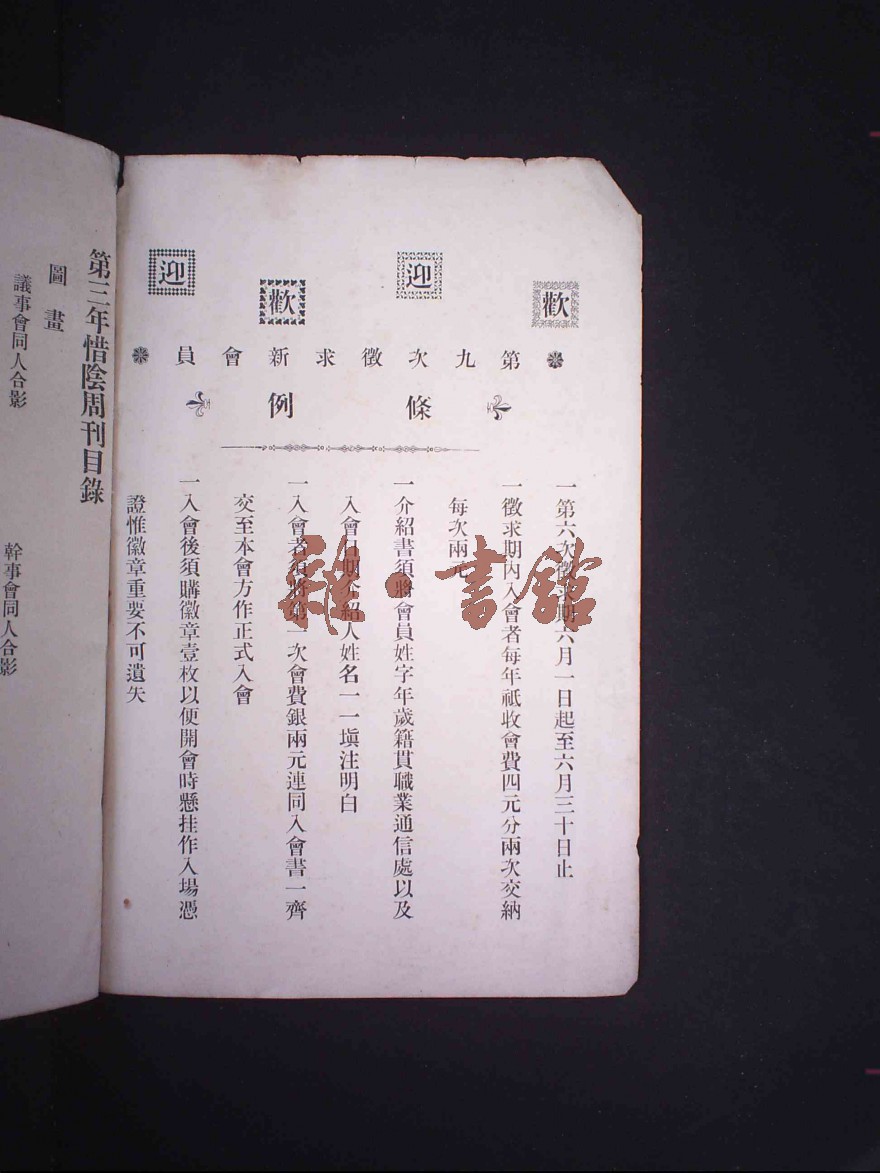 歡迎歡迎
第九次徵求新會員
條例
一第六次徵求期六月一日起至六月三十日止
一徵求期內入會者每年祇收會費四元分兩次交納
每次兩元
一介紹書須將會員姓字年歲籍貫職業通信處以及
入會日期介紹人姓名一一塡注明白
一入會者須將第一次會費銀兩元連同入會書一齊
交至本會方作正式入會
一入會後須購徽章壹枚以便開會時懸挂作入場憑
證惟徽章重要不可遺失
第三年惜陰周刊目錄
圖畫
議事會同人合影
幹事會同人合影
雜·書館